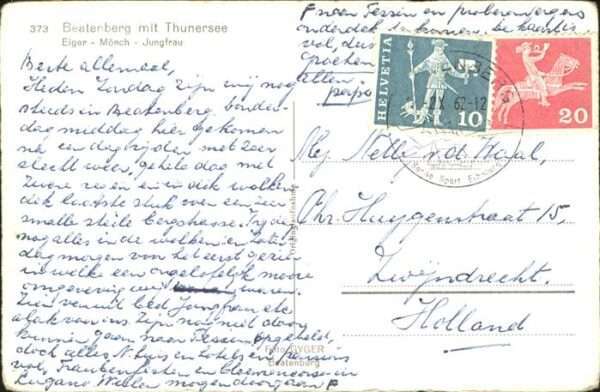 373 Beatenberg mit Thunersee
Eiger - Mönch - Jungfrau
Beste allemaal,
Heden Zondag zijn wij nog
steeds in Beatenberg. Donder-
dag middag hier gekomen
na eendagrijden met zeer
slecht weer, gehele dag met
zware regen en in dik wolken
dik laatste stuk over een zeer
smalle steile bergstrasse. Vrijdag
nog alles in de wolken en zater
dag morgen voor het eerst gezien
in welke een ongelofelijk mooie
omgeving we waren.
Zien vanuit bed Jungfrau etc
vlak voor ons. Zijn nog niet door
kunnen gaan naar Tessin
doch alles N. huis en hotels en pensions
vol, Traubenfesten en bloemencorso in
Lugano. Willen morgen doorgaan
naar Tessin en proberen ergens
onderdak te komen
vol, dus
Groeten
allen.
papa
HELVETIA
10
20
IX 62-12
Mej Nelly v.d. Waal,
Chr. Huygenstraat 15,
Zwijndrecht.
Holland
GYGER
Beatenberg